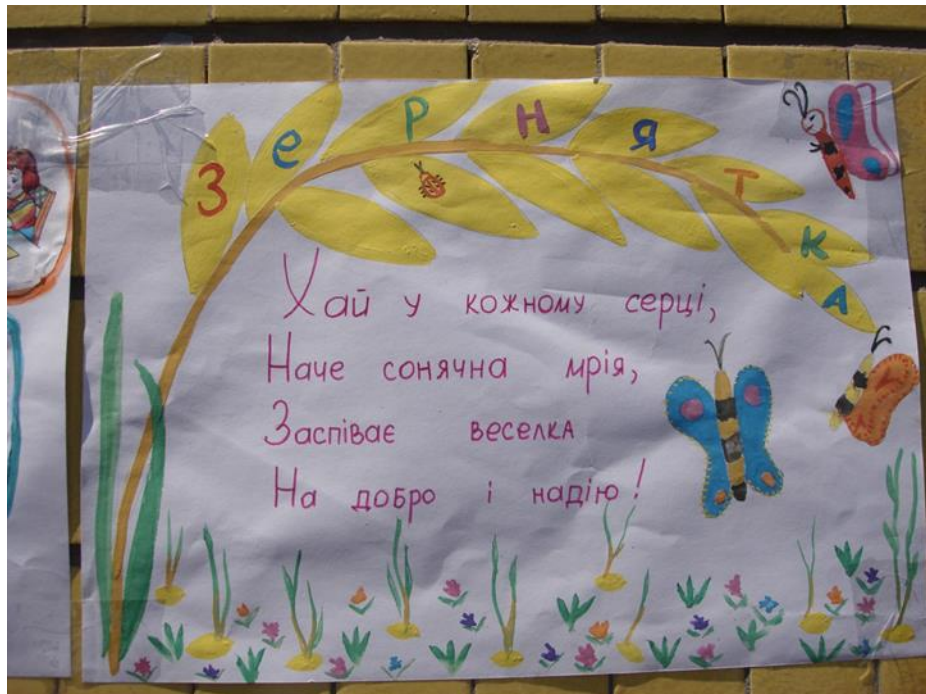 Зернятка
Хай у кожному серці,
Наче сонячна мрія,
Заспіває веселка
На добро і надію!